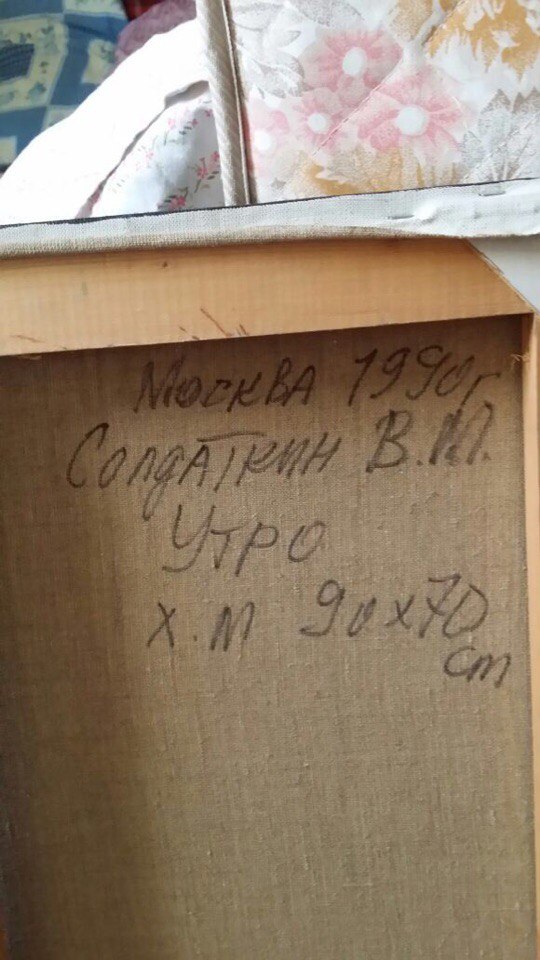 Москва 1990г
Солдаткин В.М.
Утро
х.м 90х70
cm